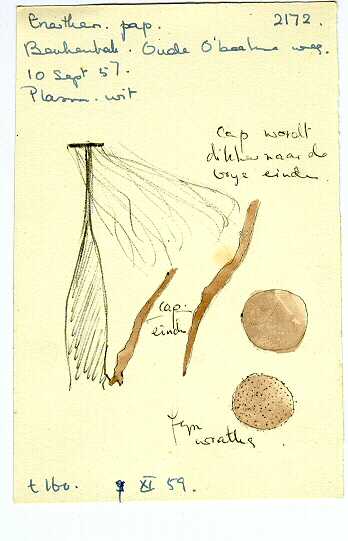 Enerthen. pap. 2172.
Beukenbat. Oude O'beekse weg.
10 Sept 57.
Plasm. wit
Cap wordt
dikker naar de
vrije einden
cap.
einde
Fyn
wrattig
t 160. XI 59.